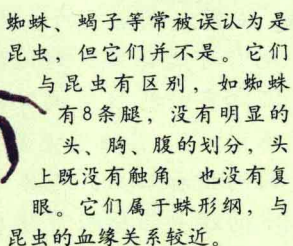 蜘蛛、蝎子等常被误认为是
昆虫，但它们并不是。它们
与昆虫有区别，如蜘蛛
有8条腿，没有明显的
头、胸、腹的划分，头
上既没有触角，也没有复
眼。它们属于蛛形纲，与
昆虫的血缘关系较近。